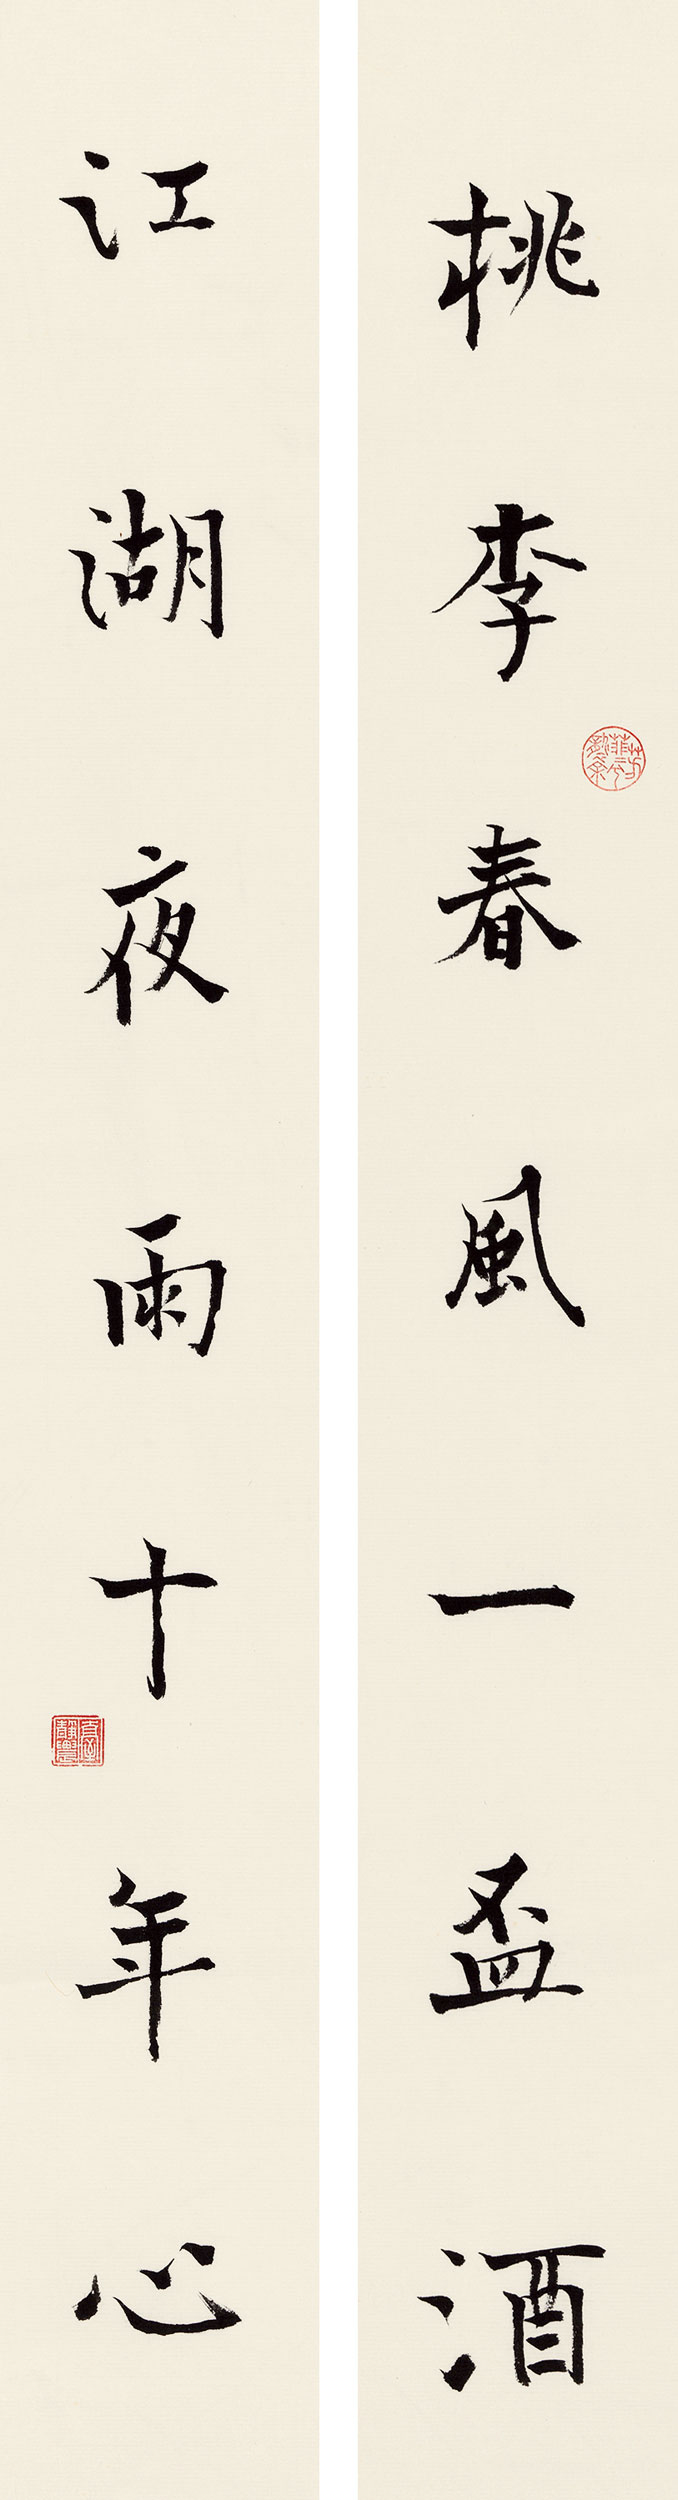 桃李春風一盃酒
江湖夜雨十年心